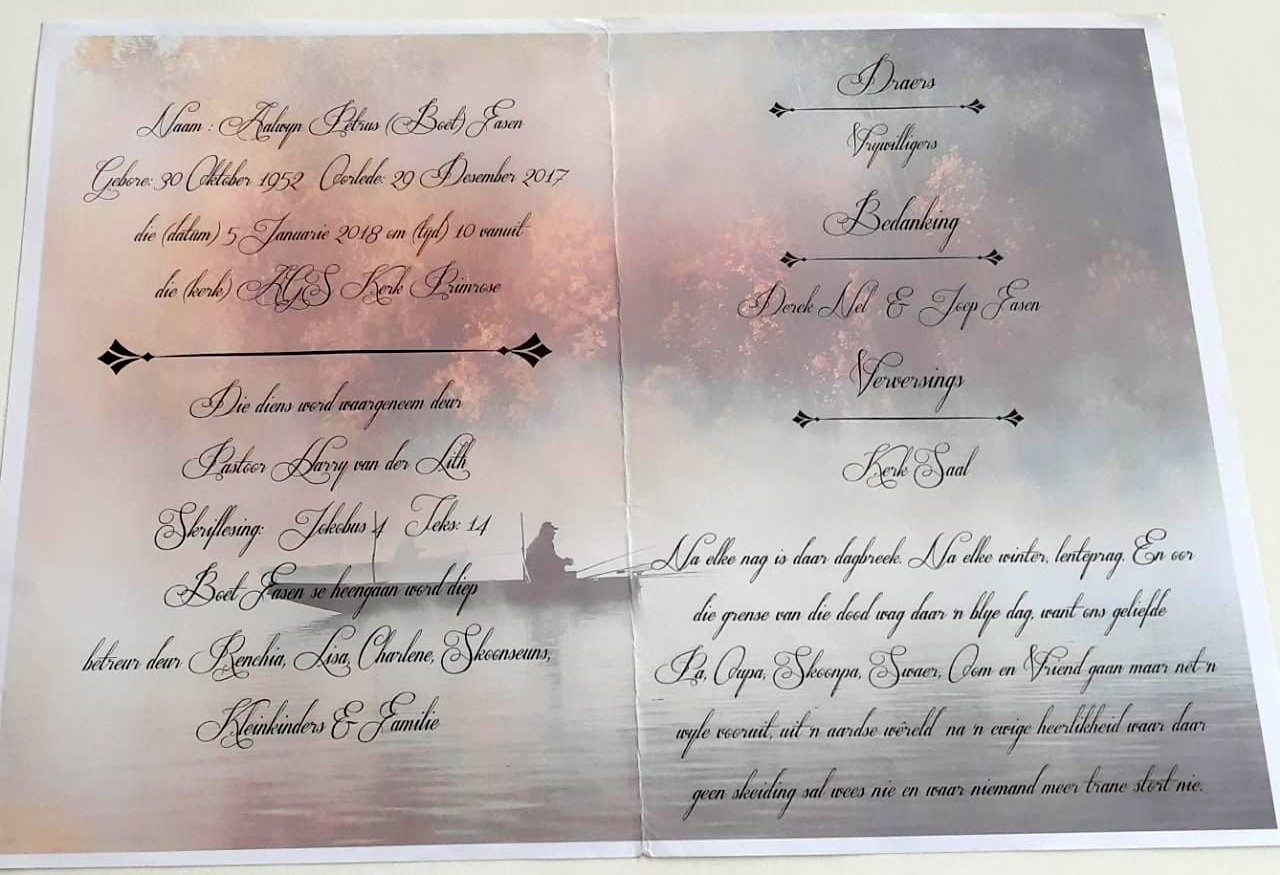 Naam : Aalwyn Petrus (Boet) Fasen
Gebore: 30 Oktober 1952 Oorlede: 29 Desember 2017
die (datum) 5 Januarie 2018 om (tyd) 10 vanuit
die (kerk) AGS Kerk Primrose
Die diens word waargeneem deur
Pastoor Harry van der Lith
Skriflesing: Jokobus 4 Teks: 14
Boet Fasen se heengaan word diep
betreur deur Renchia, Lisa, Charlene, Skoonseuns,
Kleinkinders & Familie
Draers
Vrywilligers
Bedanking
Derek Nel & Joep Fasen
Verversings
Kerk Saal
Na elke nag is daar dagbreek. Na elke winter, lenteprag. En oor
die grense van die dood wag daar 'n blye dag, want ons geliefde
Pa, Oupa, Skoonpa, Swaer, Oom en Vriend gaan maar net 'n
wyle vooruit, uit 'n aardse wêreld na 'n ewige heerlikheid waar daar
geen skeiding sal wees nie en waar niemand meer trane stort nie.